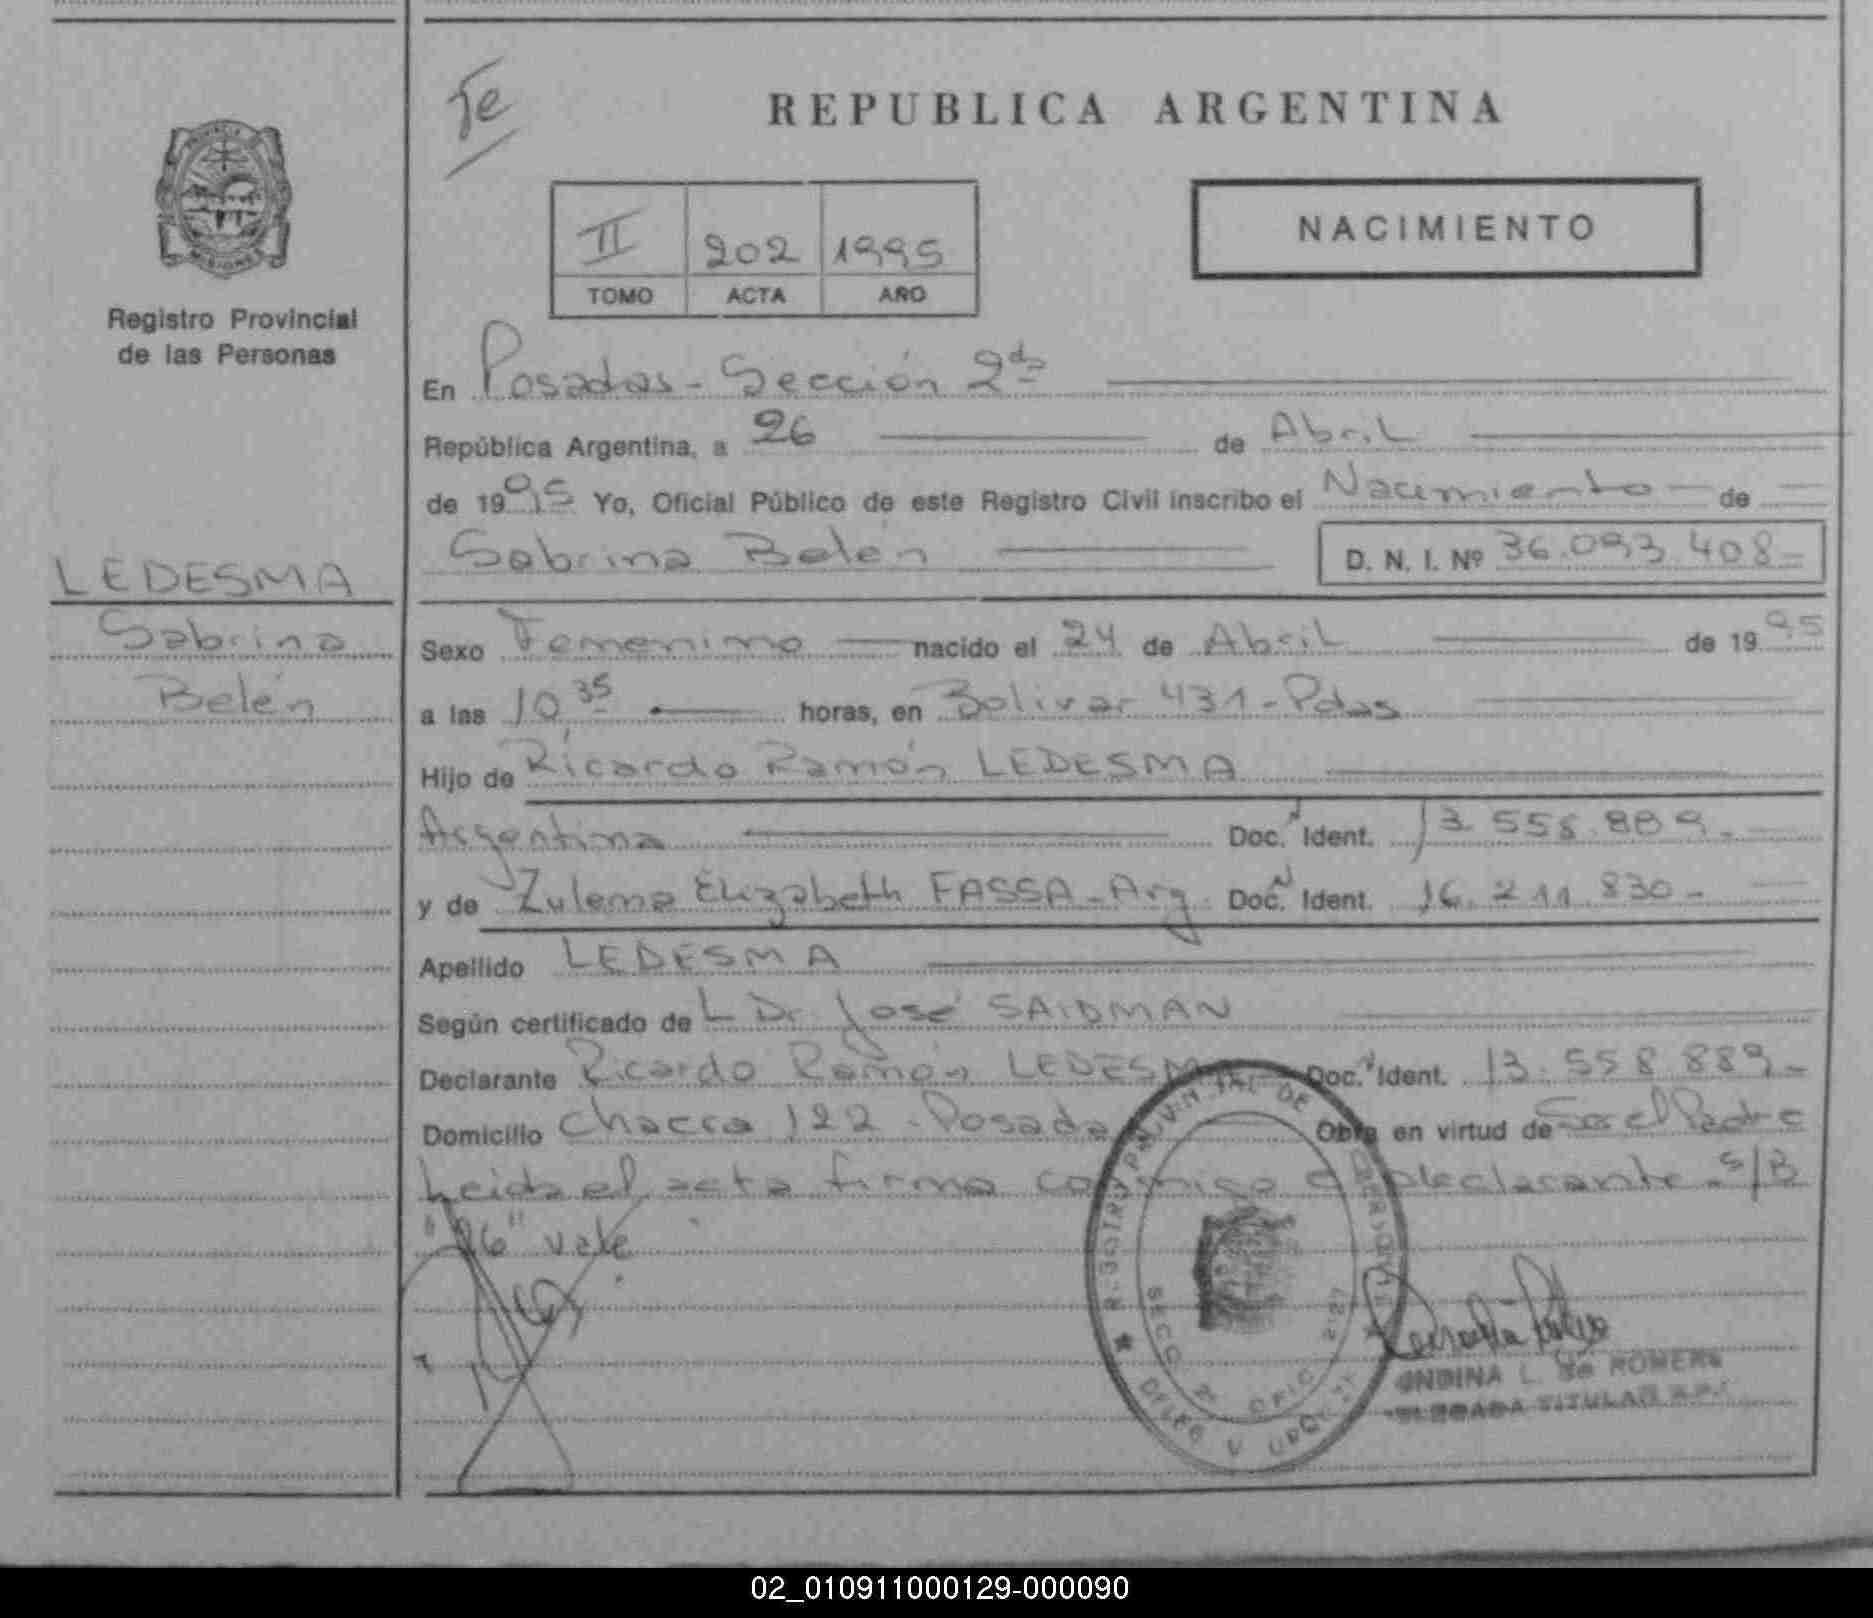 REPUBLICA ARGENTINA
NACIMIENTO
II 202 1995
TOMO ACTA AÑO
Registro Provincial
de las Personas
En Posadas - Sección 2da
República Argentina, a 26 de Abril
de 1995 Yo, Oficial Público de este Registro Civil inscribo el Nacimiento de
Sabrina Belén D. N. I. Nº 36.093.408-
LEDESMA
Sabrina
Belén
Sexo Femenino nacido el 24 de Abril de 1995
a las 10 35 horas, en Bolivar 431 - Pdas
Hijo de Ricardo Ramón LEDESMA
Argentina Doc. N Ident. 13.558.889.-
y de Zulema Elizabeth FASSA - Arg. Doc. N Ident. 16.211.830-
Apellido LEDESMA
Según certificado de L Dr. José SAIDMAN
Declarante Ricardo Ramón LEDESMA Doc. N Ident. 13.558.889-
Domicilio Chacra 122 - Posadas Obra en virtud de Ser el Padre
Leida el acta firma conmigo el declarante - S/B
"26" vale
ONDINA L. de ROMERO
DELEGADA TITULAR R.P.P.
02_010911000129-000090